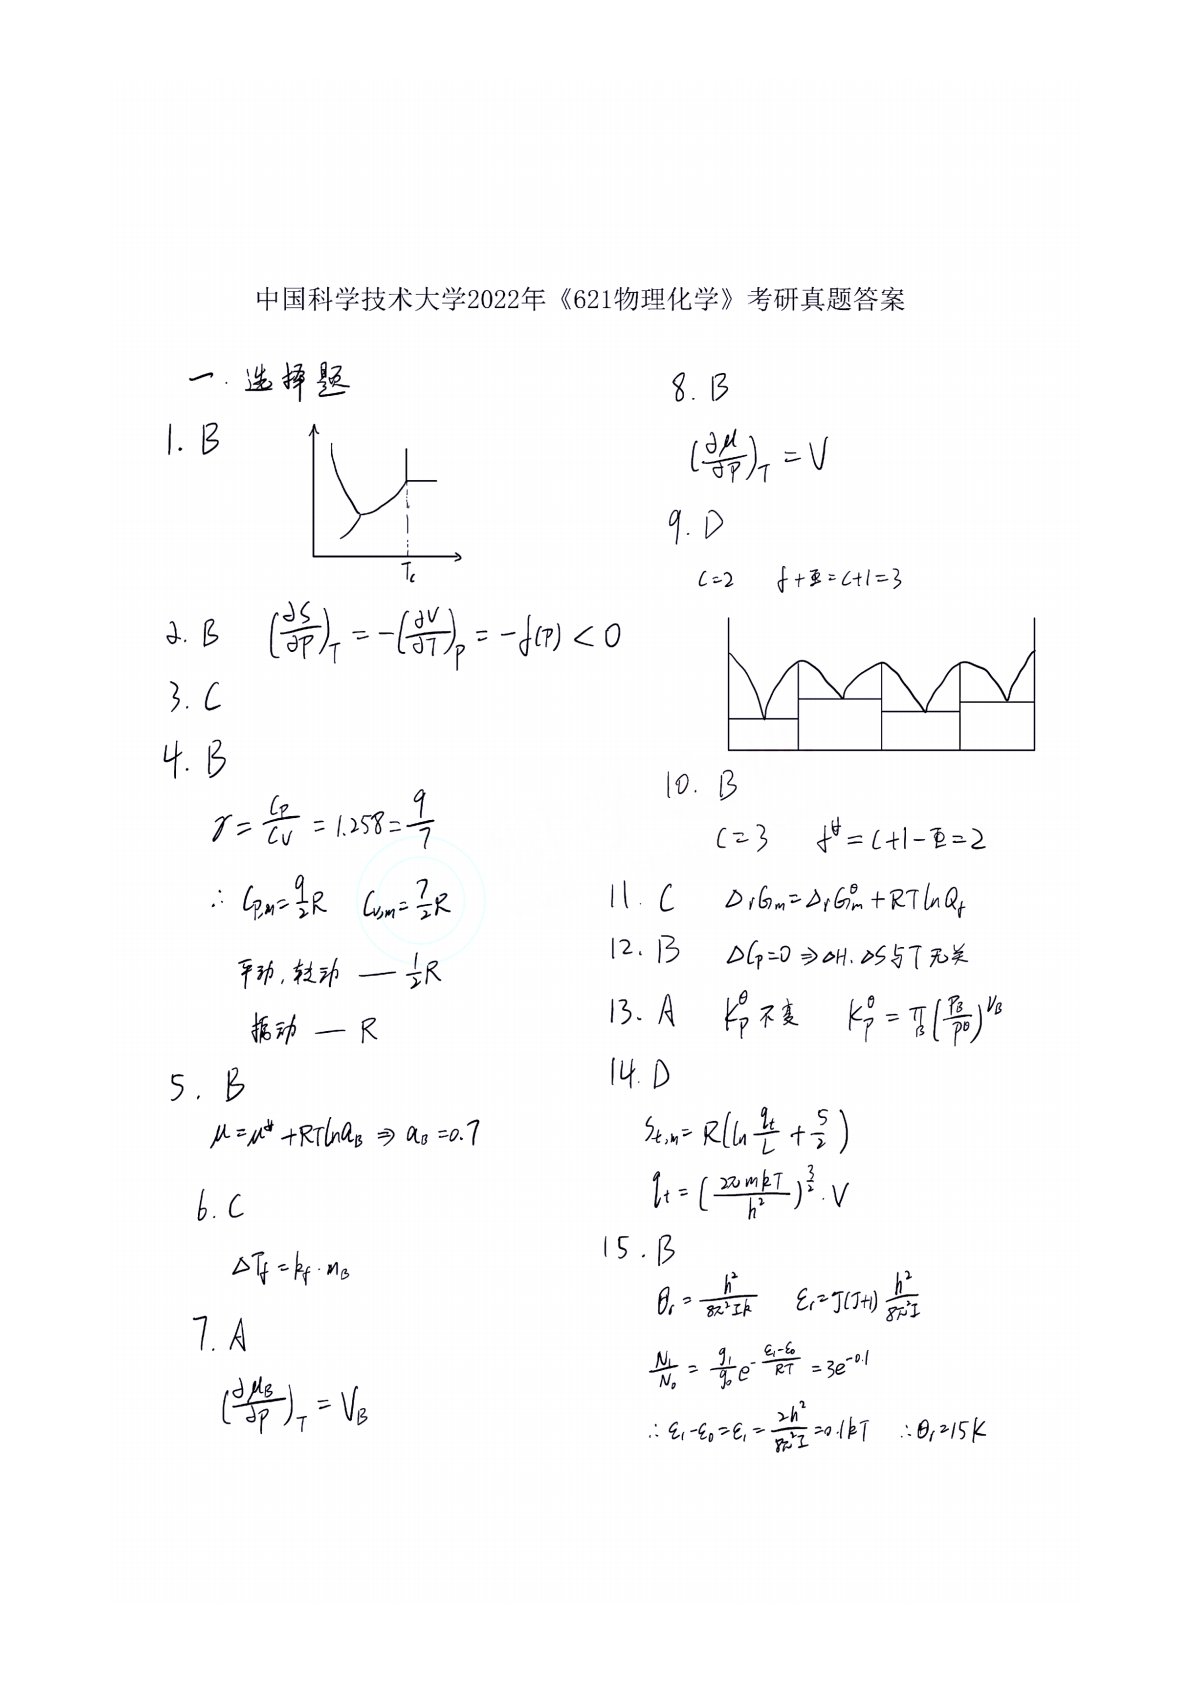 中国科学技术大学2022年《621物理化学》考研真题答案
一. 选择题
1. B
Tc
2. B (∂S/∂P)_T = -(∂V/∂T)_P = -f(P) < 0
3. C
4. B
γ = Cp/Cv = 1.258 = 9/7
∴ Cp,m = 9/2 R Cv,m = 7/2 R
平动, 转动 — 1/2 R
振动 — R
5. B
μ = μ* + RTlnaB ⇒ aB = 0.7
6. C
ΔTf = kf · mB
7. A
(∂μB/∂P)_T = VB
8. B
(∂μ/∂P)_T = V
9. D
C=2 f+Φ=C+1=3
10. B
C=3 f* = C+1-Φ = 2
11. C ΔrGm = ΔrGm^θ + RTlnQf
12. B ΔCp=0 ⇒ ΔH. ΔS与T无关
13. A Kp^θ 不变 Kp^θ = π_B (PB/P^θ)^νB
14. D
St,m = R(ln qt/L + 5/2)
qt = (2πmkT/h²)^3/2 · V
15. B
θr = h²/8π²Ik εr = J(J+1) h²/8π²I
N1/N0 = g1/g0 e^-(ε1-ε0)/RT = 3e^-0.1
∴ ε1-ε0 = ε1 = 2h²/8π²I = 0.1kT ∴ θr = 15K